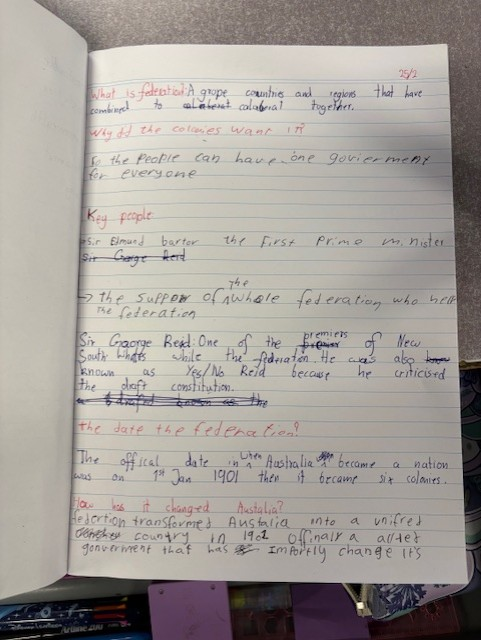 25/2
What is federation: A grope countries and regions that have
combined to calaberal together.
Why did the colonies want it?
So the people can have one govierment
for everyone
Key people
Sir Edmund barton the First Prime minister
Sir George Reid
→ the support of the whole federation who help
the federation
Sir Gogorge Reid: One of the premiers of New
South Whales while the federation. He was also
known as Yes/No Reid because he criticised
the draft constitution.
the date the federation?
The offical date in when Australia became a nation
was on 1st Jan 1901 then it became six colonies.
How has it changed Austalia?
fedortion transformed Australia into a unifred
country in 1901 a
gonverment that has change it's